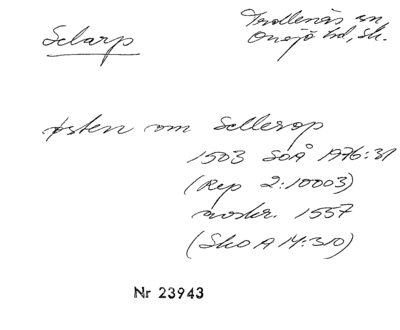 Selarp
Trollenäs sn,
Onsjö hd, Sk.
östen om Sellerop
1503 SOÅ 1976:31
(Rep 2:10003)
avskr. 1557
(Sko A M:310)
Nr 23943